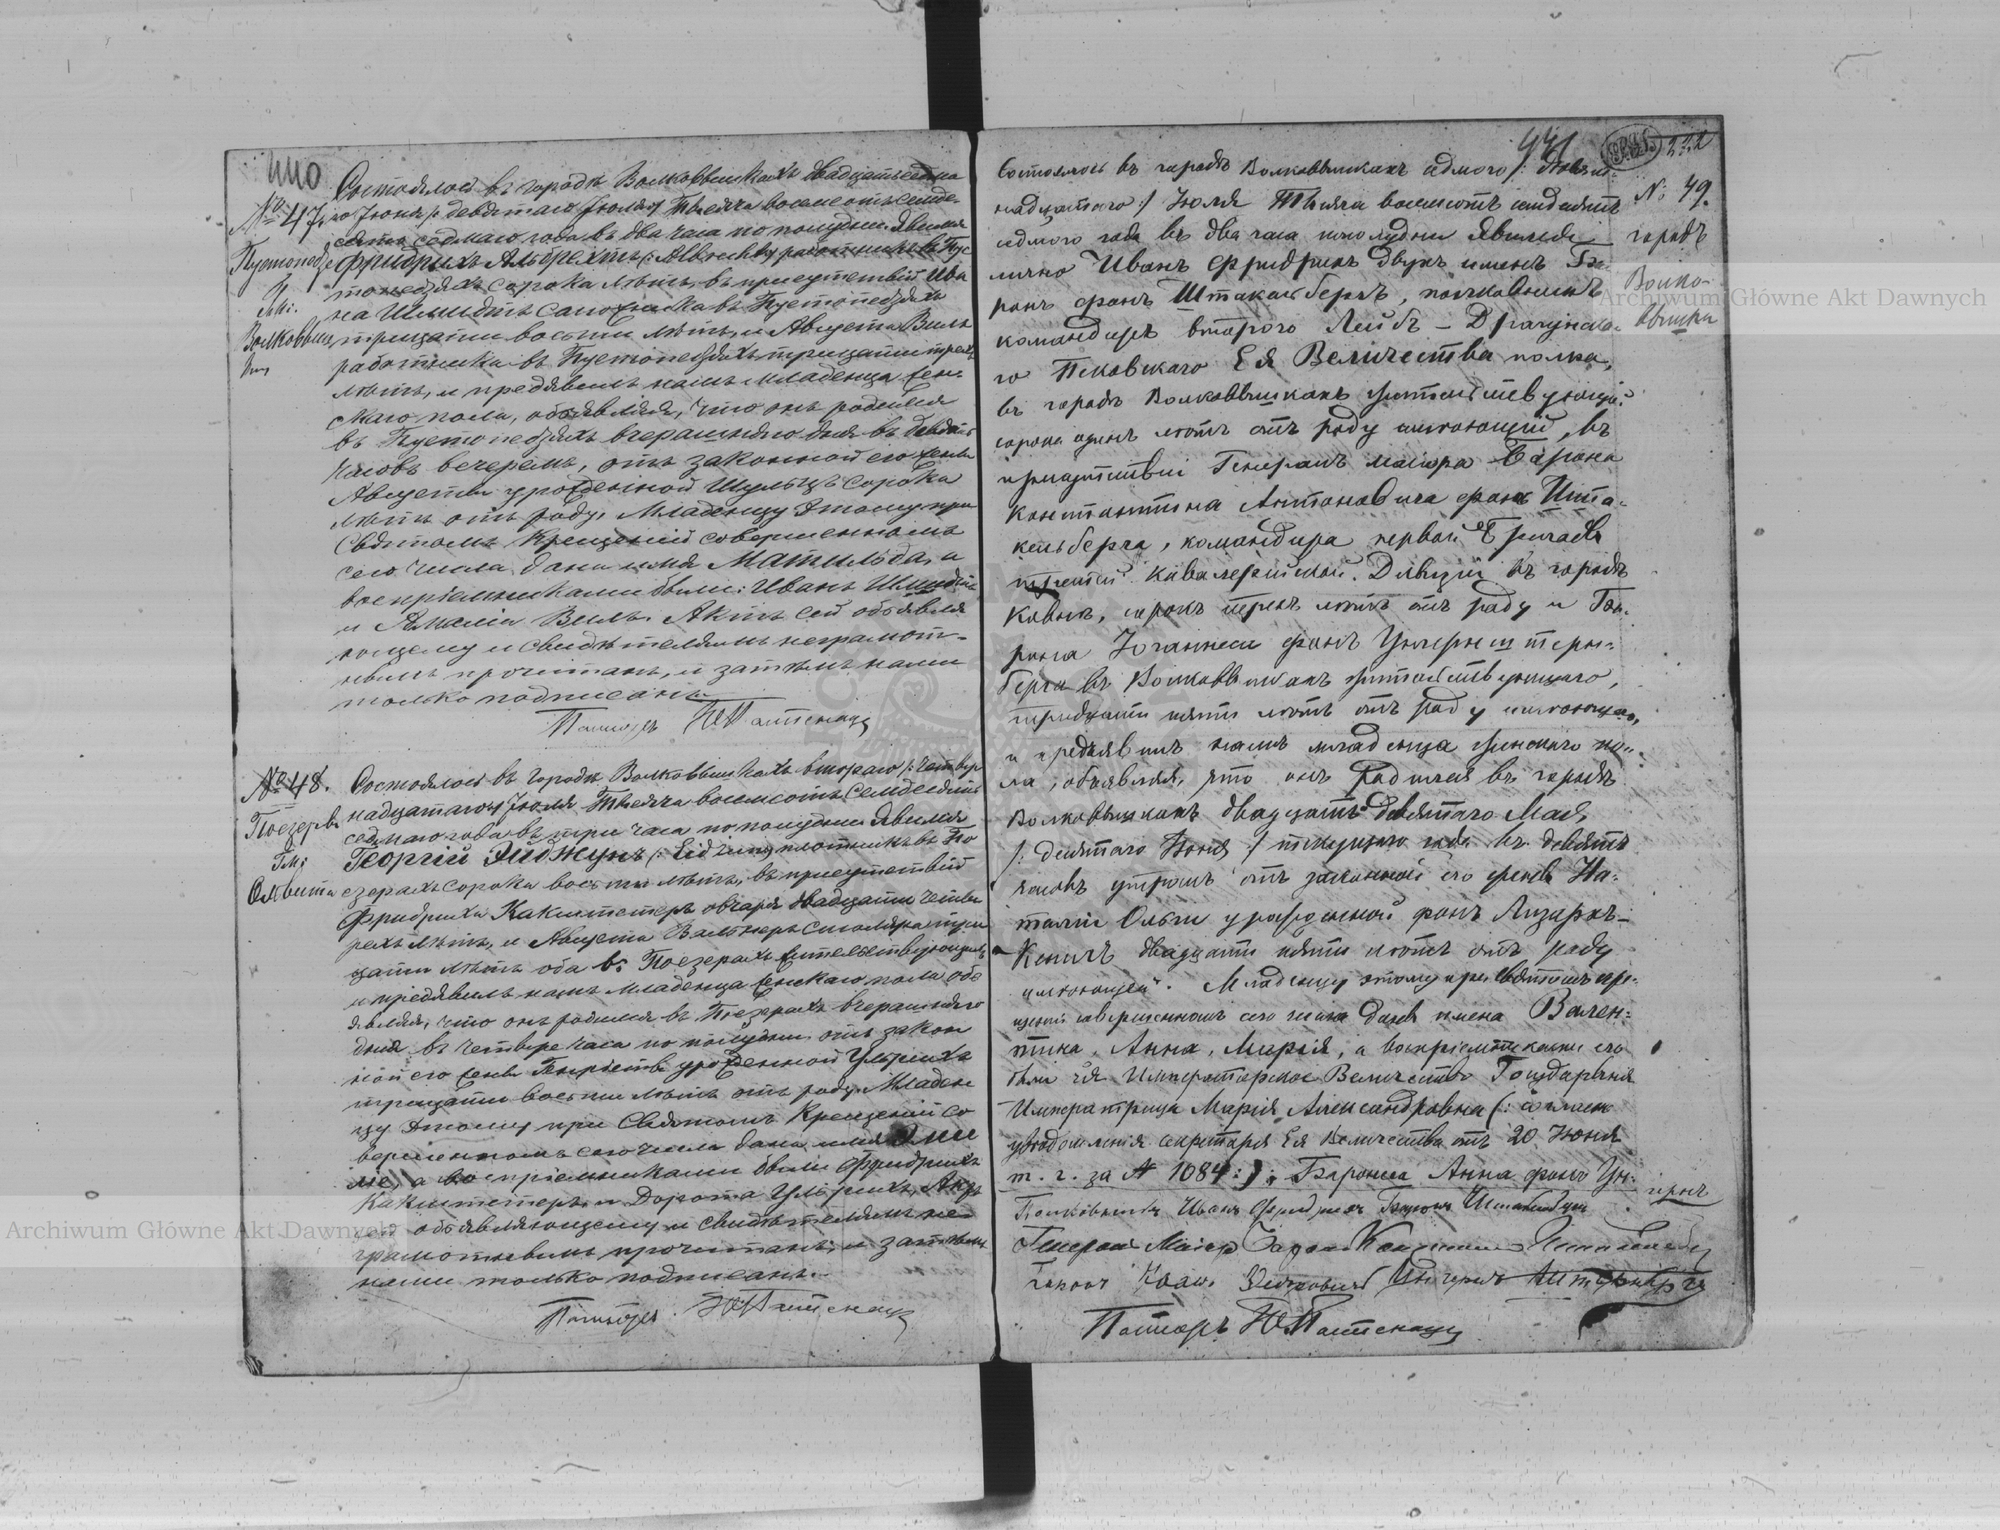 440
№ 47.
Пустопедзе
Гм:
Волковыш
ки
Состоялось въ городѣ Волковышкахъ двадцать седьма
го Іюня /: девятаго Іюля :/ Тысяча восемсотъ семде
сятъ седмаго года въ два часа по полудни. Явился
Фридрихъ Альбрехтъ, работникъ въ Пус
топедзяхъ сорока лѣтъ, въ присутствіи Ива
на Шмидтъ въ Пустопедзяхъ
тридцати восьми лѣтъ, и Августа Виль
работника въ Пустопедзяхъ тридцати трехъ
лѣтъ, и предъявилъ намъ младенца жен
скаго пола, объявляя, что онъ родился
въ Пустопедзяхъ вчерашняго дня въ девять
часовъ вечеромъ, отъ законной его жены
Августы урожденной Шульцъ сорока
лѣтъ отъ роду. Младенцу этому при
Святомъ Крещеніи совершенномъ
сего числа дано имя Матильда, а
воспріемниками были: Иванъ Шмидтъ
и Амалія Виль. Актъ сей объявля
ющему и свидѣтелямъ неграмот-
нымъ прочитанъ, и затѣмъ нами
только подписанъ.
Пасторъ
№ 48.
Поезеры
Гм:
Олвита
Состоялось въ городѣ Волковышкахъ втораго /: четыр
надцатаго :/ Іюля Тысяча восемсотъ семдесятъ
седмаго года въ три часа по полудни. Явился
Георгій Эйджунъ, плотникъ въ По
езерахъ сорока восьми лѣтъ, въ присутствіи
Фридриха Какштетеръ овчаря двадцати четы
рехъ лѣтъ, и Августа Вальнеръ столяра три
цати лѣтъ оба въ Поезерахъ жительствующихъ
и предявилъ намъ младенца женскаго пола объ
являя, что онъ родился въ Поезерахъ вчерашняго
дня въ четыре часа по полудни отъ закон
ной его жены Генріеты урожденной Ульрихъ
тридцати восьми лѣтъ отъ роду. Младен
цу этому при Святомъ Крещеніи со
вершенномъ сего числа дано имя Эми
лія, а воспріемниками были Фридрихъ
Какштетеръ и Дорота Ульрихъ. Актъ
сей объявляющему и свидѣтелямъ не
грамотнымъ прочитанъ, и затѣмъ
нами только подписанъ.
Пасторъ
441
222
№ 49.
городъ
Волко-
вышки
Состоялось въ городѣ Волковышкахъ седмого /: девят-
надцатаго :/ Іюля Тысяча восемсотъ семдесятъ
седмого года въ два часа пополудни явился
лично Иванъ Фридрихъ двухъ именъ Ба-
ронъ фонъ Штакельбергъ, полковникъ
командиръ второго Лейбъ-Драгунска-
го Псковскаго Ея Величества полка,
въ городѣ Волковышкахъ жительствующій
сорока одинъ лѣтъ отъ роду имѣющій, въ
присутствіи Генералъ маіора Барона
Константина Антоновича фонъ Шта-
кельберга, командира первой Бригады
третей Кавалерійской Дивизіи въ городѣ
Ковнѣ, сорокъ лѣтъ отъ роду и Ба-
рона Іоганнеса фонъ Унгернштерн-
берга въ Волковышкахъ жительствующаго,
тридцати пяти лѣтъ отъ роду имѣющаго,
и предъявилъ намъ младенца женскаго по-
ла, объявляя, что онъ родился въ городѣ
Волковышкахъ двадцать девятаго Мая
/: десятаго Іюня :/ текущаго года въ девять
часовъ утромъ отъ законной его жены На-
таліи Ольги урожденной фонъ Лизархъ-
Кенигъ двадцати пяти лѣтъ отъ роду
имѣющей. Младенцу этому при Святомъ кре-
щеніи совершенномъ сего числа даны имена Вален-
тина, Анна, Марія, а воспріемниками его
были Ея Императорское Величество Государыня
Императрица Марія Александровна (: согласно
увѣдомленія секретаря Ея Величества отъ 20 Іюня
т. г. за № 1084 :) ; Баронесса Анна фонъ Ун-
гернъ
Полковникъ Иванъ Фридрихъ Баронъ Штакельбергъ
Генералъ Маіоръ Баронъ Константинъ Штакельбергъ
Баронъ Унгернъ Штернбергъ
Пасторъ
Archiwum Główne Akt Dawnych
Archiwum Główne Akt Dawnych